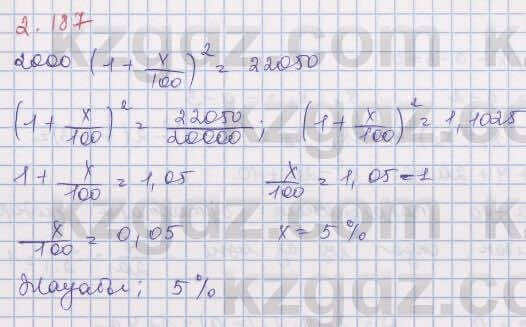 2.187
2000 (1 + x/100)² = 22050
(1 + x/100)² = 22050/20000; (1 + x/100)² = 1,1025
1 + x/100 = 1,05 x/100 = 1,05 - 1
x/100 = 0,05 x = 5 %
Жауабы; 5 %
kzgdz.com